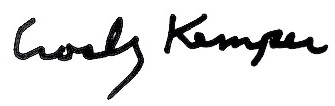 Crosby Kemper